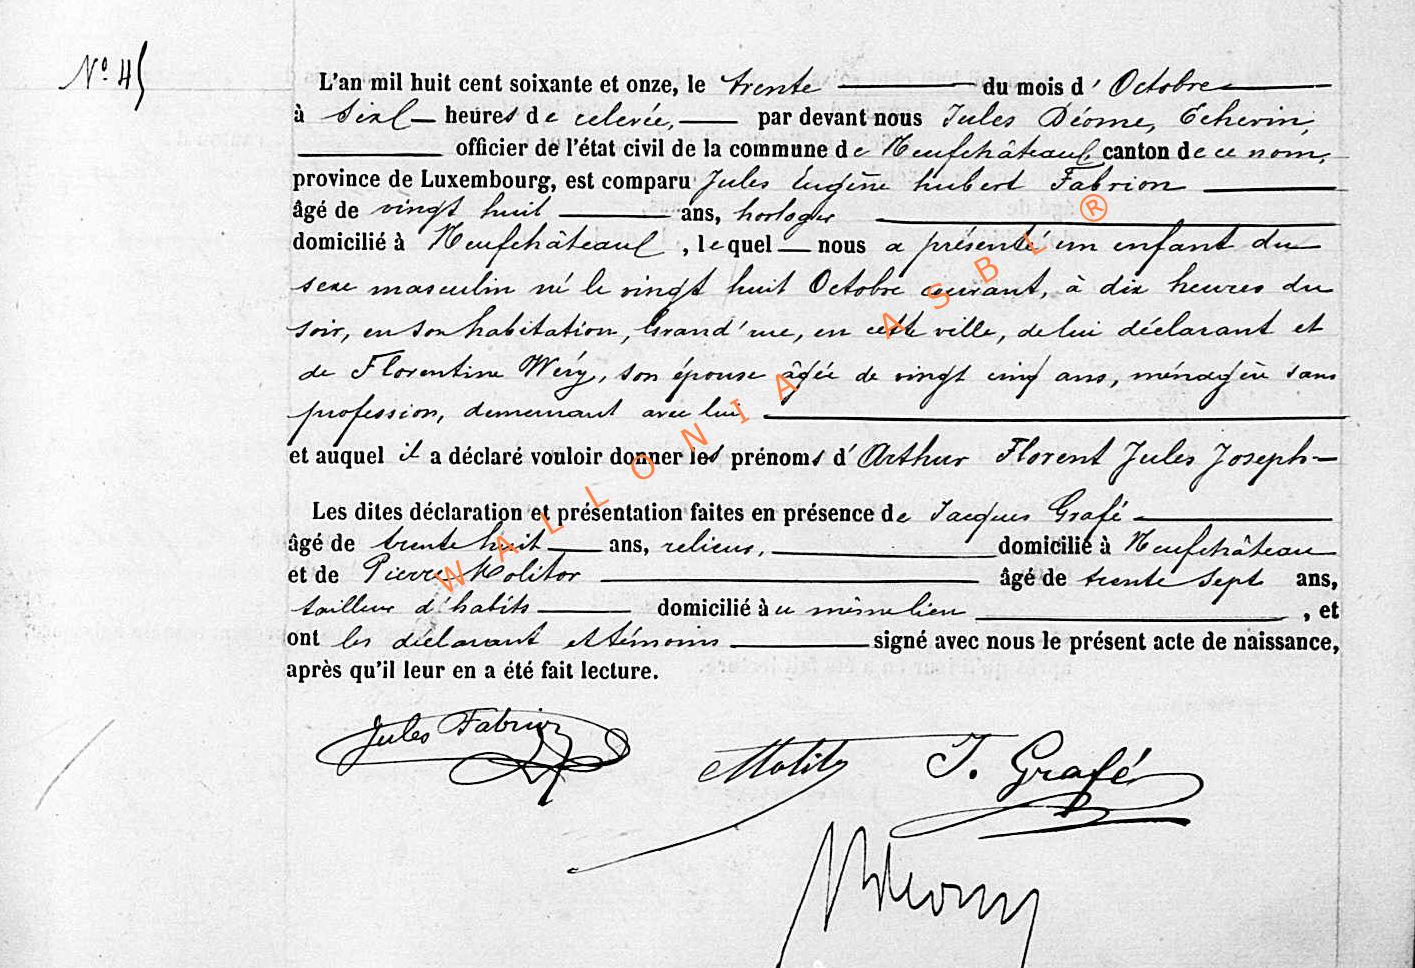 N° 45
L'an mil huit cent soixante et onze, le trente du mois d' Octobre
à six heures de relevée, par devant nous Jules Déome, Echevin,
officier de l'état civil de la commune de Neufchâteau, canton de ce nom,
province de Luxembourg, est comparu Jules Eugène hubert Fabrion
âgé de vingt huit ans, horloger
domicilié à Neufchâteau, lequel nous a présenté un enfant du
sexe masculin né le vingt huit Octobre courant, à dix heures du
soir, en son habitation, Grand'rue, en cette ville, de lui déclarant et
de Florentine Wéry, son épouse âgée de vingt cinq ans, ménagère sans
profession, demeurant avec lui
et auquel il a déclaré vouloir donner les prénoms d'Arthur Florent Jules Joseph
Les dites déclaration et présentation faites en présence de Jacques Grafé
âgé de trente huit ans, relieur, domicilié à Neufchâteau
et de Pierre Molitor âgé de trente sept ans,
tailleur d'habits domicilié à ce même lieu, et
ont les déclarant et témoins signé avec nous le présent acte de naissance,
après qu'il leur en a été fait lecture.
Jules Fabrion
Molitor J. Grafé
WALLONIA ASBL ®